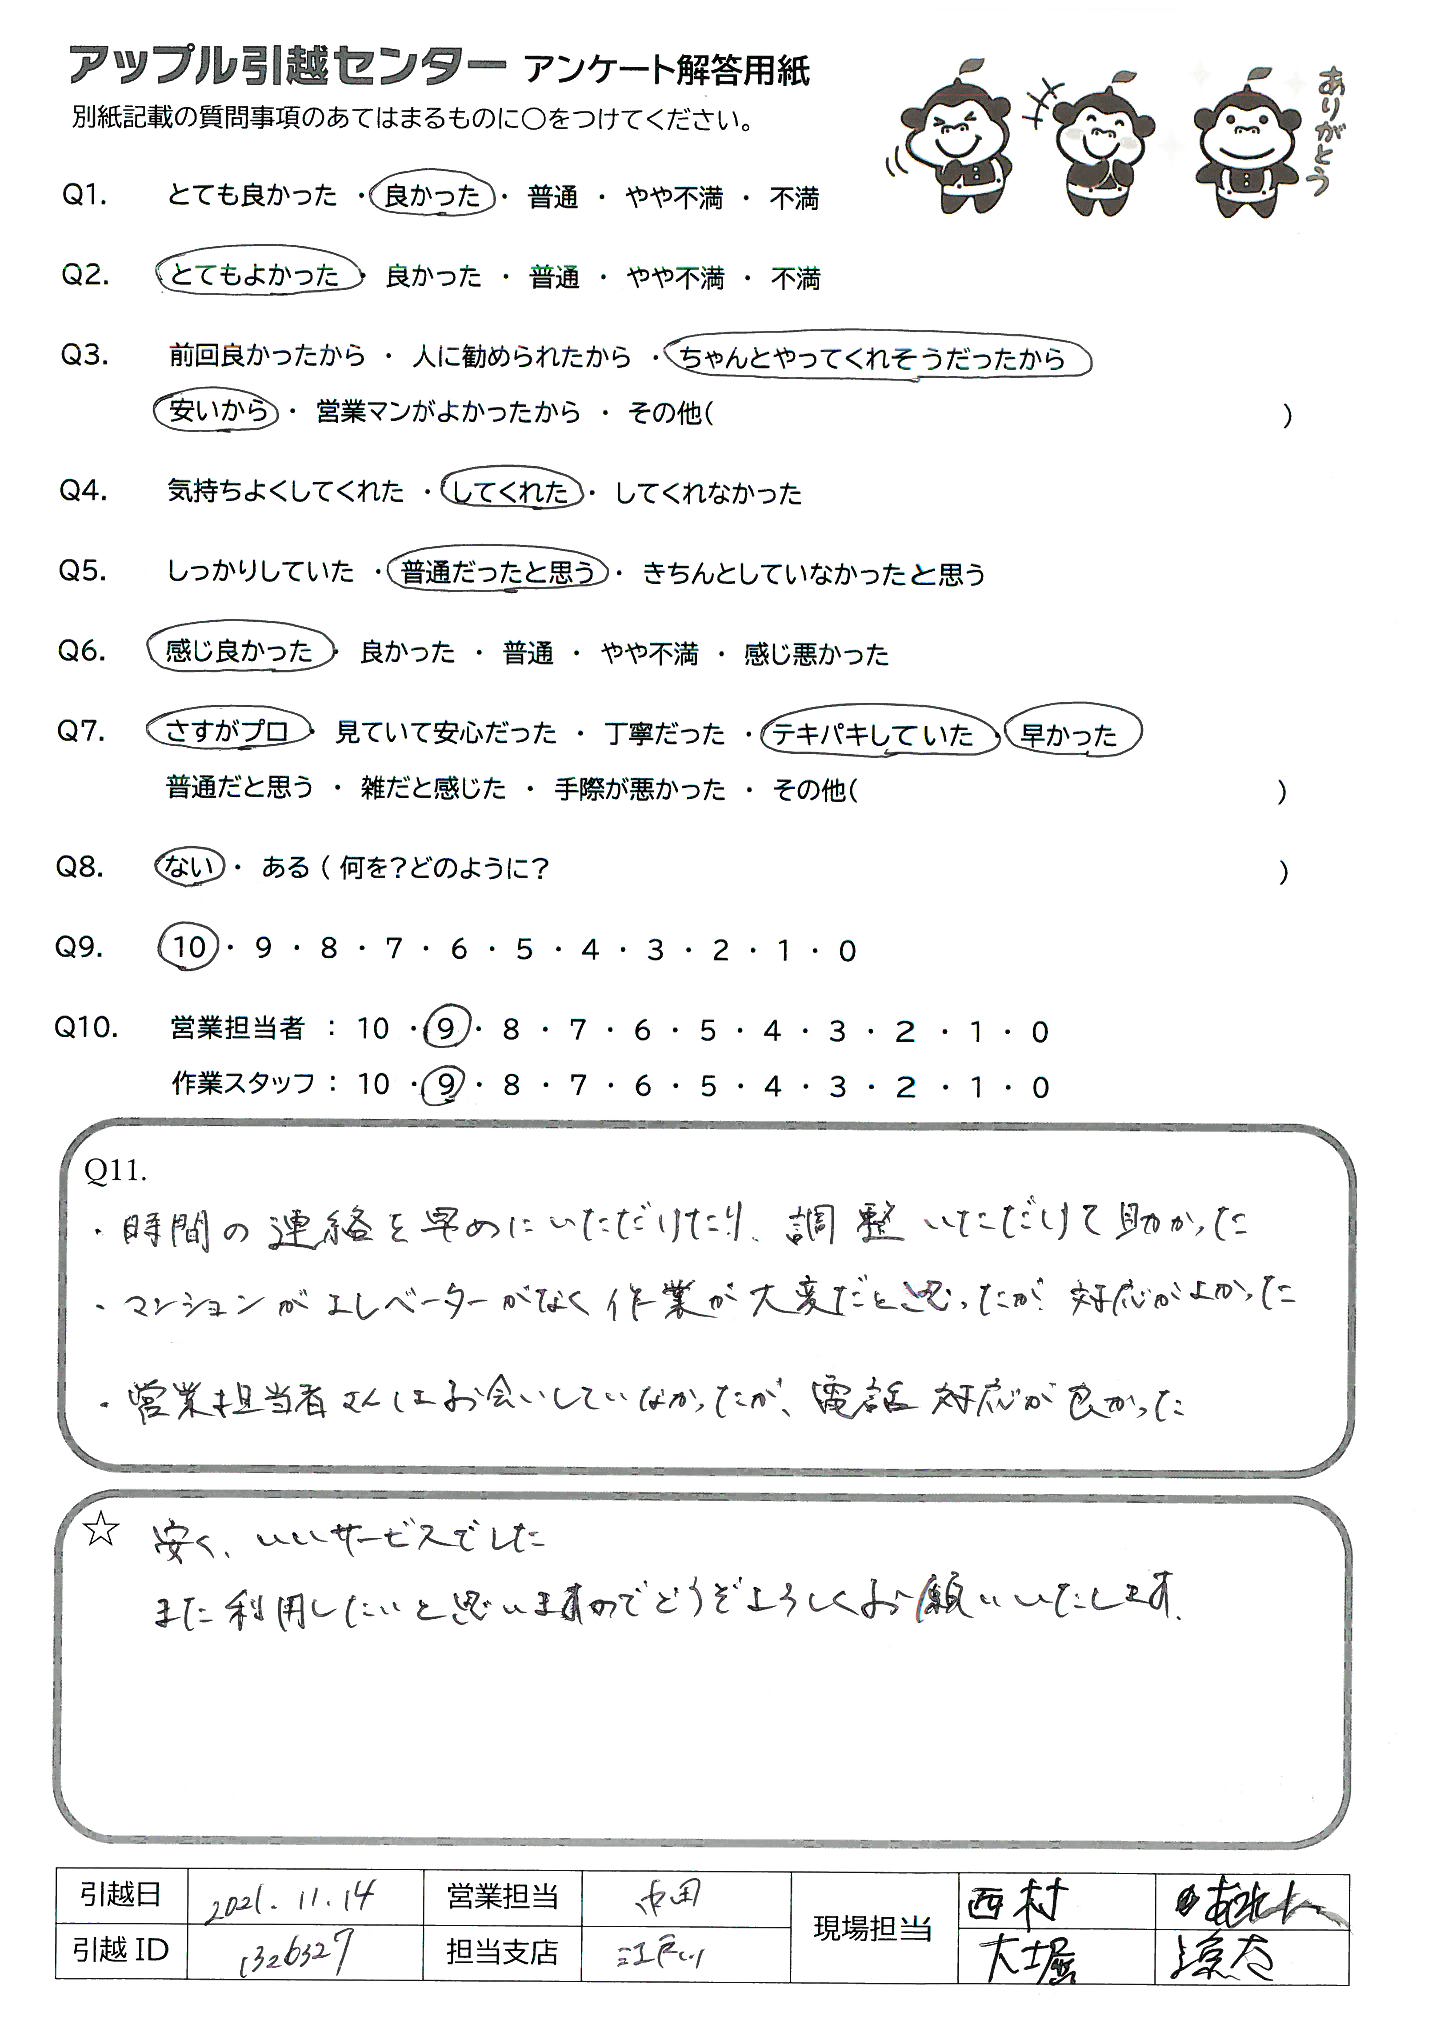 アップル引越センター アンケート解答用紙
別紙記載の質問事項のあてはまるものに○をつけてください。
ありがとう
Q1. とても良かった ・ 良かった ・ 普通 ・ やや不満 ・ 不満
Q2. とてもよかった ・ 良かった ・ 普通 ・ やや不満 ・ 不満
Q3. 前回良かったから ・ 人に勧められたから ・ ちゃんとやってくれそうだったから
安いから ・ 営業マンがよかったから ・ その他( )
Q4. 気持ちよくしてくれた ・ してくれた ・ してくれなかった
Q5. しっかりしていた ・ 普通だったと思う ・ きちんとしていなかったと思う
Q6. 感じ良かった ・ 良かった ・ 普通 ・ やや不満 ・ 感じ悪かった
Q7. さすがプロ ・ 見ていて安心だった ・ 丁寧だった ・ テキパキしていた ・ 早かった
普通だと思う ・ 雑だと感じた ・ 手際が悪かった ・ その他( )
Q8. ない ・ ある ( 何を?どのように? )
Q9. 10 ・ 9 ・ 8 ・ 7 ・ 6 ・ 5 ・ 4 ・ 3 ・ 2 ・ 1 ・ 0
Q10. 営業担当者 : 10 ・ 9 ・ 8 ・ 7 ・ 6 ・ 5 ・ 4 ・ 3 ・ 2 ・ 1 ・ 0
作業スタッフ : 10 ・ 9 ・ 8 ・ 7 ・ 6 ・ 5 ・ 4 ・ 3 ・ 2 ・ 1 ・ 0
Q11.
・時間の連絡を早めにいただけたり、調整いただけて助かった
・マンションがエレベーターがなく作業が大変だと思ったが、対応がよかった
・営業担当者さんはお会いしていなかったが、電話対応が良かった
☆ 安く、いいサービスでした
また利用したいと思いますのでどうぞよろしくお願いいたします。
引越日 2021.11.14 営業担当 内田 現場担当 西村
引越 ID 1326327 担当支店 江戸川 大堀 涼太